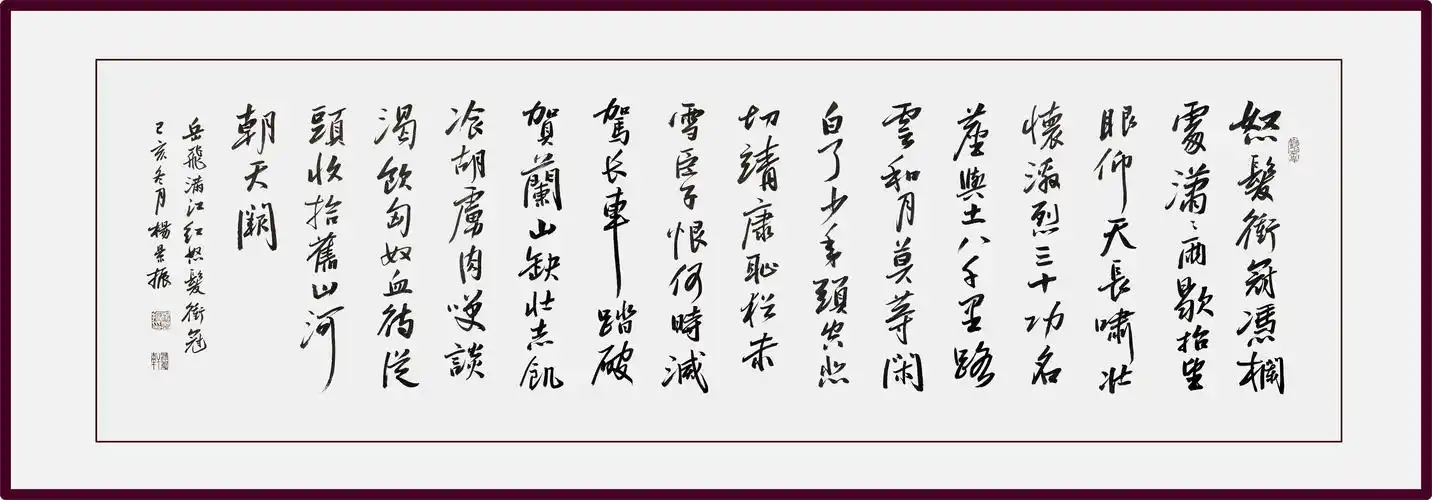 怒髮衝冠馮欄
處瀟〻雨歇抬望
眼仰天長嘯壯
懷激烈三十功名
塵與土八千里路
雲和月莫等閑
白了少年頭空悲
切靖康恥猶未
雪臣子恨何時滅
駕长車踏破
賀蘭山缺壯志飢
飡胡虜肉唉談
渴飲匈奴血待從
頭收拾舊山河
朝天闕
岳飛滿江红怒髮衝冠
己亥冬月楊景振